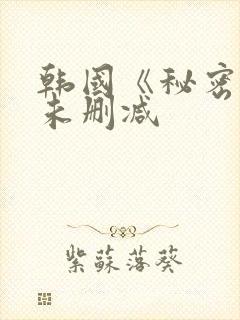 韩国《秘密
未删减
紫蘇落葵